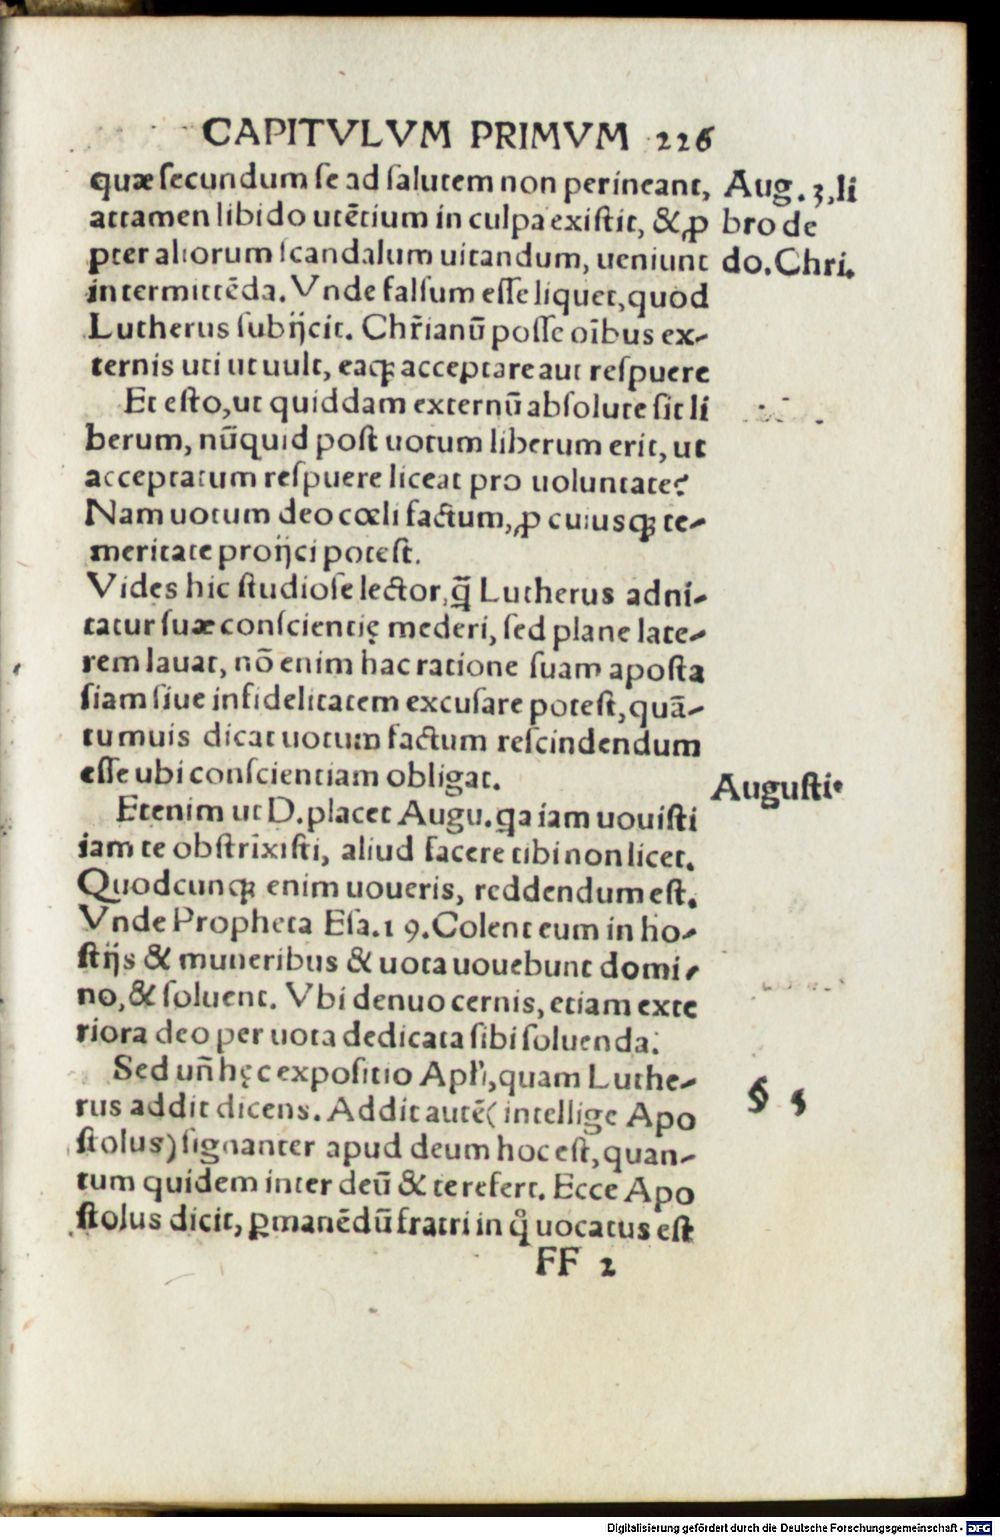 CAPITVLVM PRIMVM 226
quæ ſecundum ſe ad ſalutem non perineant,
Aug. 3, li
attamen libido utētium in culpa exiſtit, & ꝓ
bro de
pter aliorum ſcandalum uitandum, ueniunt
do. Chri.
intermittēda. Vnde falſum eſſe liquet, quod
Lutherus ſubijcit. Chr̃ianū poſſe oībus ex-
ternis uti ut uult, eaqꝫ acceptare aut reſpuere
Et eſto, ut quiddam externū abſolute ſit li
berum, nūquid poſt uotum liberum erit, ut
acceptatum reſpuere liceat pro uoluntate?
Nam uotum deo cœli factum, ꝓ cuiusqꝫ te-
meritate proijci poteſt.
Vides hic ſtudioſe lector, q̃ Lutherus adni-
tatur ſuæ conſcientię mederi, ſed plane late-
rem lauat, nō enim hac ratione ſuam apoſta
ſiam ſiue infidelitatem excuſare poteſt, quā-
tumuis dicat uotum factum reſcindendum
eſſe ubi conſcientiam obligat.
Auguſti.
Etenim ut D. placet Augu. qa iam uouiſti
iam te obſtrixiſti, aliud facere tibi non licet.
Quodcunqꝫ enim uoueris, reddendum eſt.
Vnde Propheta Eſa. 19. Colent eum in ho-
ſtijs & muneribus & uota uouebunt domi-
no, & ſoluent. Vbi denuo cernis, etiam exte
riora deo per uota dedicata ſibi ſoluenda.
Sed uñ hęc expoſitio Apłi, quam Luthe-
§ 5
rus addit dicens. Addit autē (intellige Apo
ſtolus) ſignanter apud deum hoc eſt, quan-
tum quidem inter deū & te refert. Ecce Apo
ſtolus dicit, ꝑmanēdū fratri in qͦ uocatus eſt
FF 2
Digitalisierung gefördert durch die Deutsche Forschungsgemeinschaft - DFG